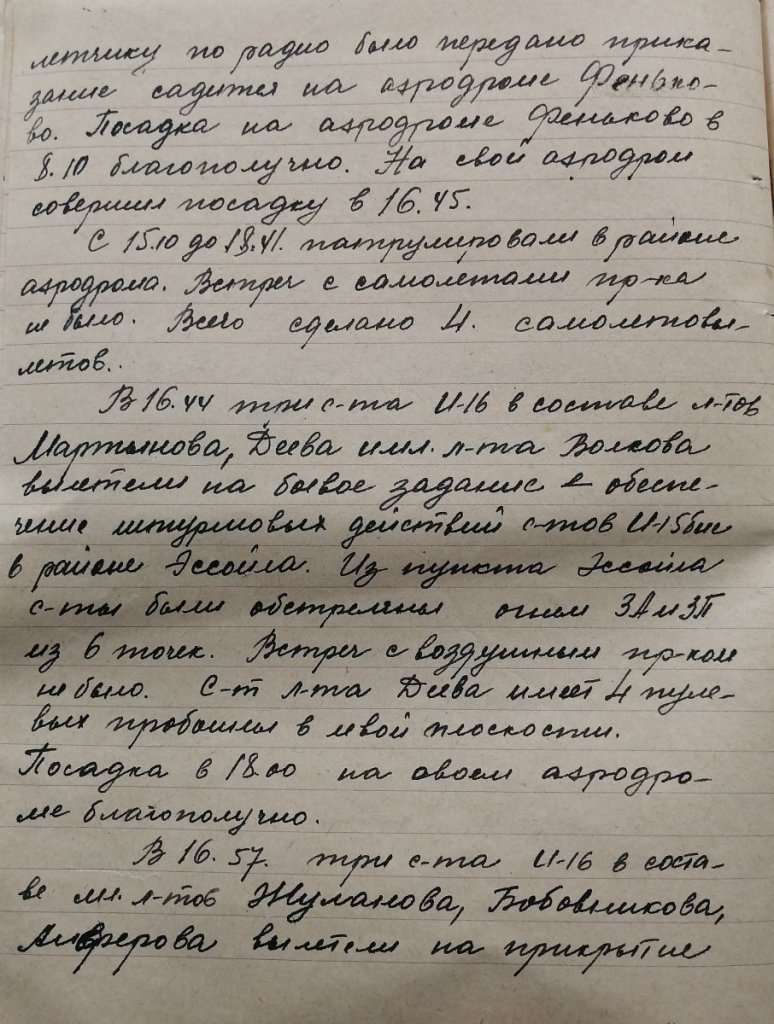 летчику по радио было передано прика-
зание садится на аэродроме Фенько-
во. Посадка на аэродроме Феньково в
8.10 благополучно. На свой аэродром
совершил посадку в 16.45.
С 15.10 до 18.41. патрулировали в районе
аэродрома. Встреч с самолетами пр-ка
не было. Всего сделано 4. самолетовы-
летов..
В 16.44 три с-та И-16 в составе л-тов
Мартынова, Деева и мл. л-та Волкова
вылетели на боевое задание – обеспе-
чение штурмовых действий с-тов И-15бис
в районе Эссойла. Из пункта Эссойла
с-ты были обстреляны огнем ЗА и ЗП
из 6 точек. Встреч с воздушным пр-ком
не было. С-т л-та Деева имеет 4 пуле-
вых пробоины в левой плоскости.
Посадка в 18.00 на своем аэродро-
ме благополучно.
В 16.57. три с-та И-16 в соста-
ве мл. л-тов Жуланова, Бобовникова,
вылетели на прикрытие